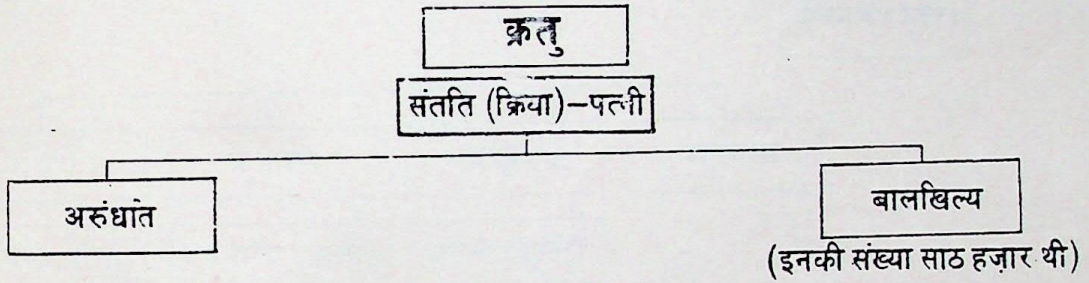 क्रतु
संतति (क्रिया)–पत्नी
अरुंधति
बालखिल्य
(इनकी संख्या साठ हज़ार थी)